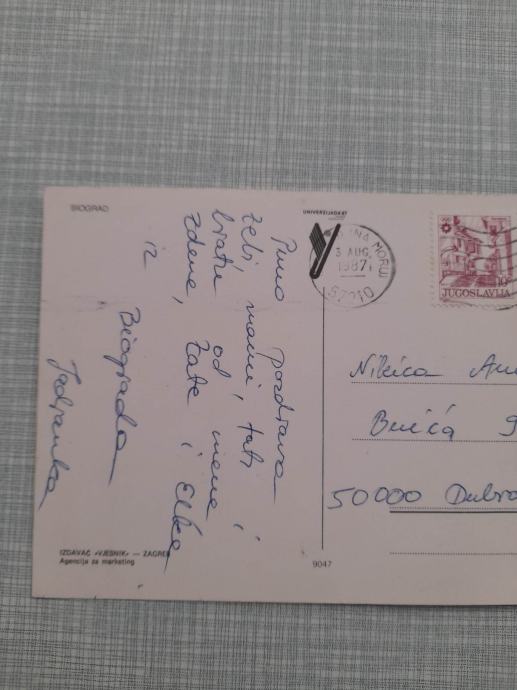 BIOGRAD
UNIVERZIJADA '87
NA MORU
3 AUG.
1987
57210
10
JUGOSLAVIJA
Puno pozdrava
tebi, mami, tati i
bratu od mene,
Zdene, Tate i Elke
iz Biograda
Jadranka
Nikica
50000 Dubro
IZDAVAČ »VJESNIK« — ZAGREB
Agencija za marketing
9047